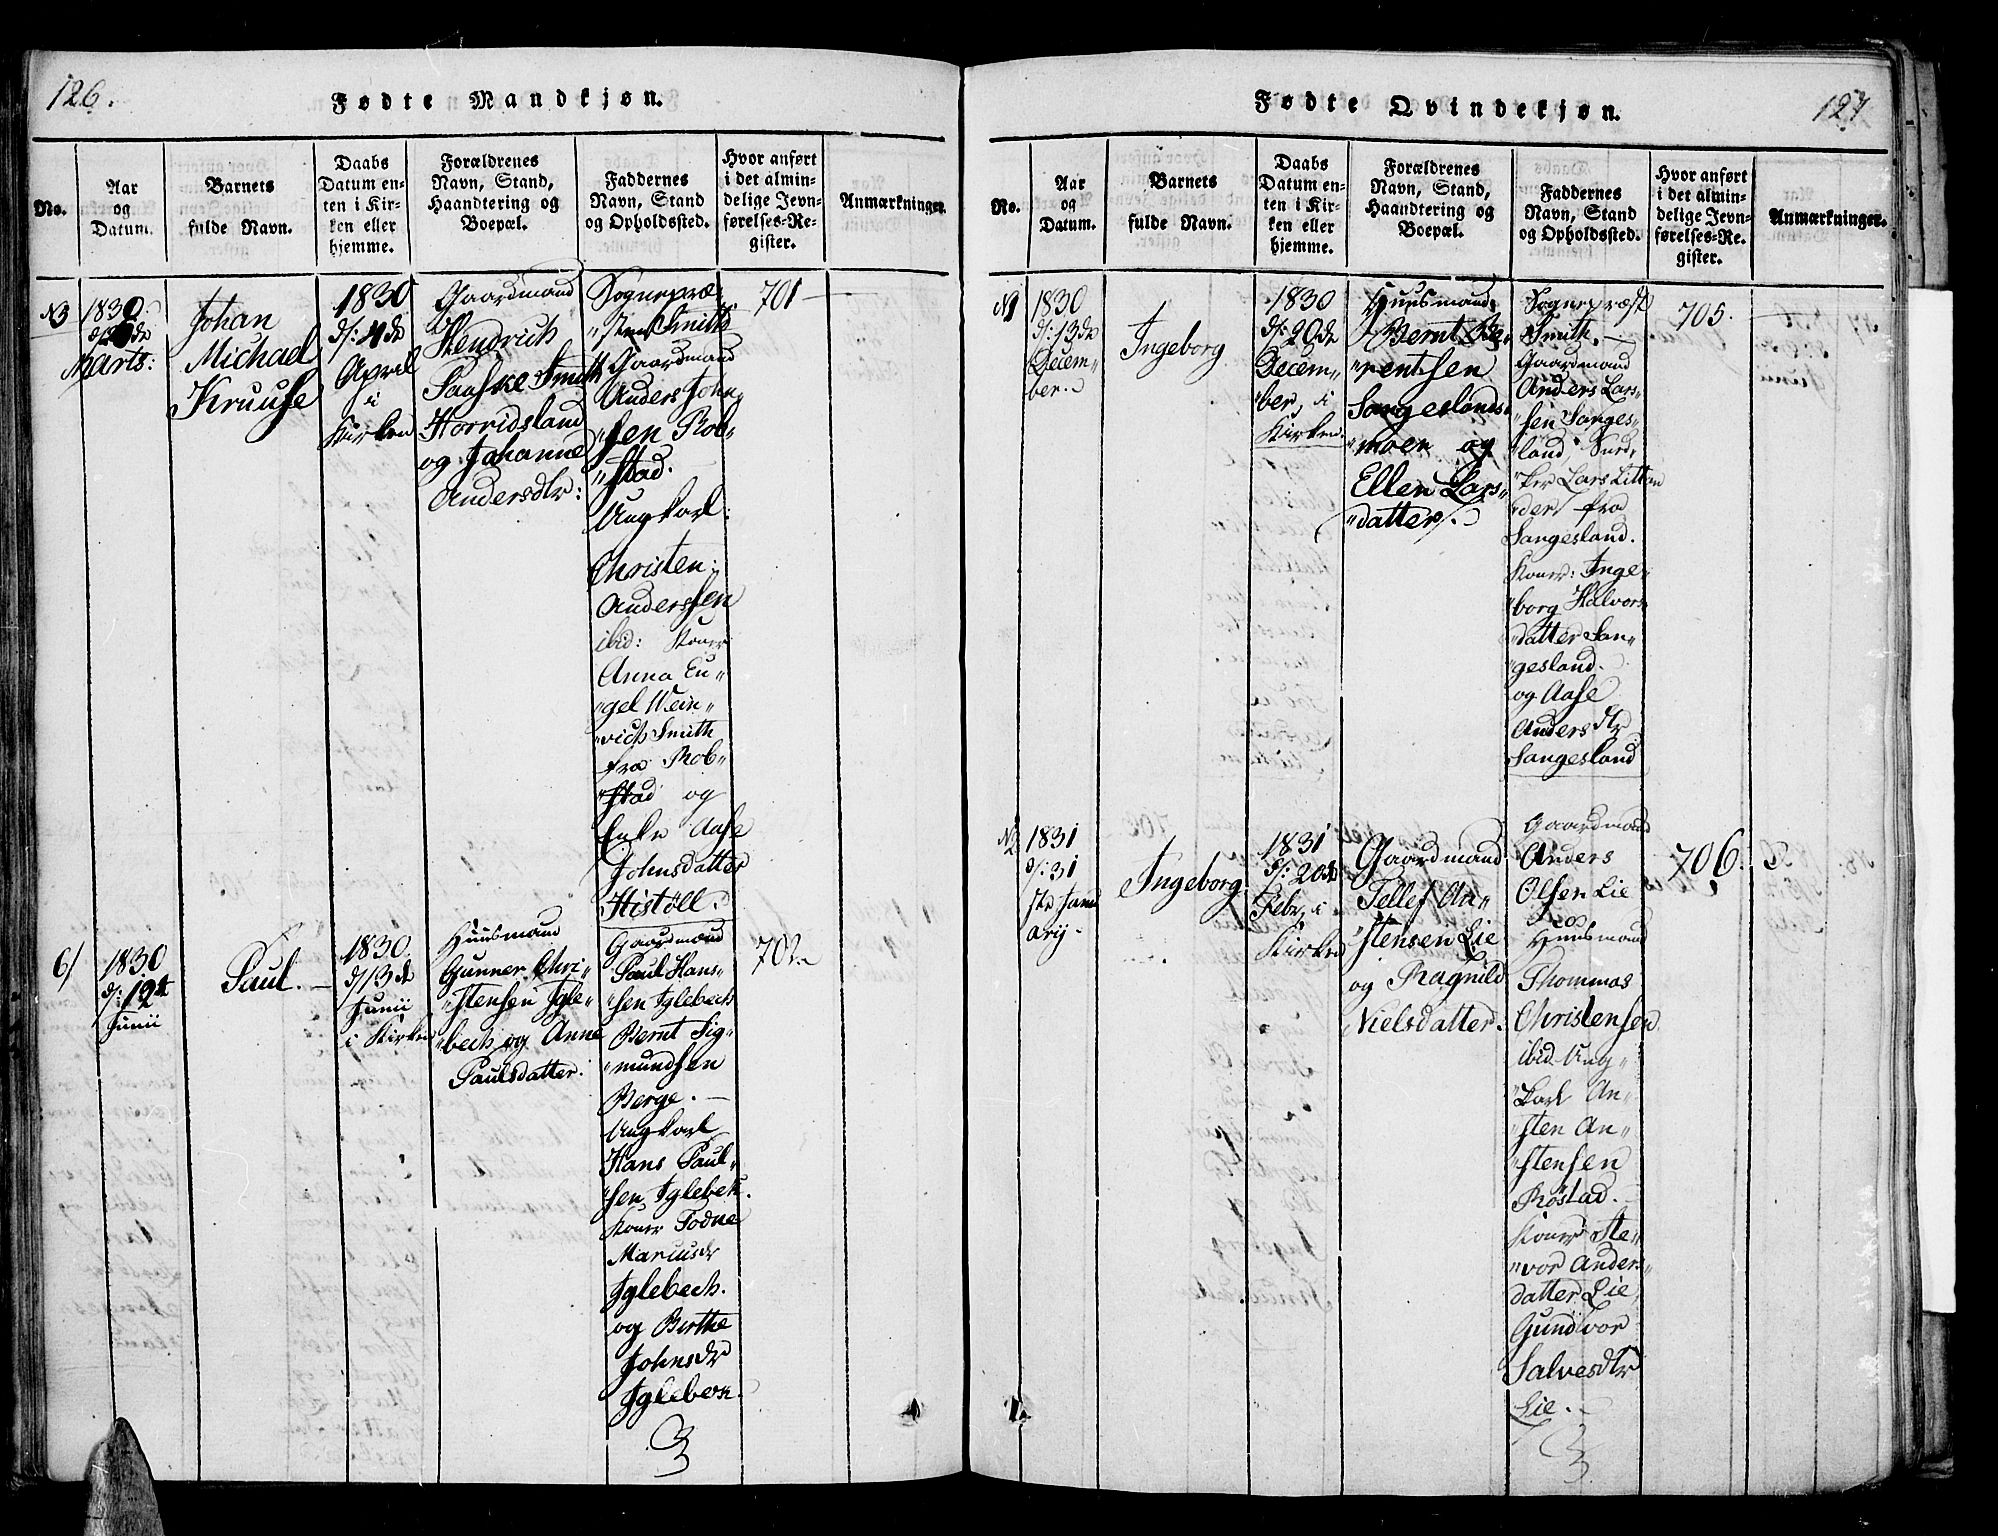 126.
Fødte Mandkjøn.
No.
Aar
og
Datum.
Barnets
fulde Navn.
Daabs
Datum en-
ten i Kir-
ken eller
hjemme.
Forældrenes
Navn, Stand,
Haandtering og
Boepæl.
Faddernes
Navn, Stand
og Opholdssted.
Hvor anført
i det almin-
delige Jevn-
førelses-Re-
gister.
Anmærkninger.
1830
Marts:
Johan
Michael
Kruuse
1830
d/: 4de
April
i
Kirken
Gaardmand
Hendrich
Paaske Smith
Horridsland
og Johanne
Andersdtr:
Sognepræ-
"sten Smith
Gaardmand
Anders John-
"sen Rob-
"stad.
Ungkarl:
Christen
Anderssen
ibid: Koner
Anna En-
"gel Wein-
"rich Smith
fra Rob-
"stad og
Enke Aase
Johnsdatter
Histöll.
701 —
6/
1830
d/: 12te
Junii
Paul. —
1830.
d/13de
Junii
i Kirken
Huusmand
Gunner Chri-
"stensen Igle-
"bech og Anne
Paulsdatter.
Gaardmænd
Paul Hans-
"sen Iglebech
Bernt Sig-
"mundsen
Berge. —
Ungkarl
Hans Paul-
"sen Iglebek.
Koner Todne
Marcusdr
Iglebech.
og Birthe
Johnsdr
Iglebek.
702.
127
Fødte Qvindekjøn.
No.
Aar
og
Datum.
Barnets
fulde Navn.
Daabs
Datum en-
ten i Kir-
ken eller
hjemme.
Forældrenes
Navn, Stand,
Haandtering og
Boepæl.
Faddernes
Navn, Stand
og Opholdssted.
Hvor anført
i det almin-
delige Jevn-
førelses-Re-
gister.
Anmærkninger.
N1
1830
d/: 13de
Decem-
ber.
Ingeborg
1830
d/: 20de
Decem-
"ber, i
Kirken.
Huusmand
Bernt Be-
"rentsen
Sangeslands-
"moen og
Ellen Lars-
"datter.
Sognepræst
Smith. —
Gaardmand
Anders Lars-
"sen Sanges-
"land,
Lars
fra
Sangesland.
Koner: Inge-
"borg Halvors-
"datter San-
"gesland.
og Aase
Andersdtr
Sangesland
705.
N2
1831
d/: 31
ste Janu
arij.
Ingeborg.
1831
d/: 20de
Febr, i
Kirken
Gaardmand
Tellef An-
"stensen Lie
og Ragnild
Nielsdatter.
Gaardmand
Anders
Olsen Lie
Huusmand
Thommas
Christensen
ibid. Ung-
"karl An-
"sten An-
"stensen
Röstad.
Koner Ste-
"vor Anders-
datter Lie
Gundvor
Salvesdtr
Lie. —
706.